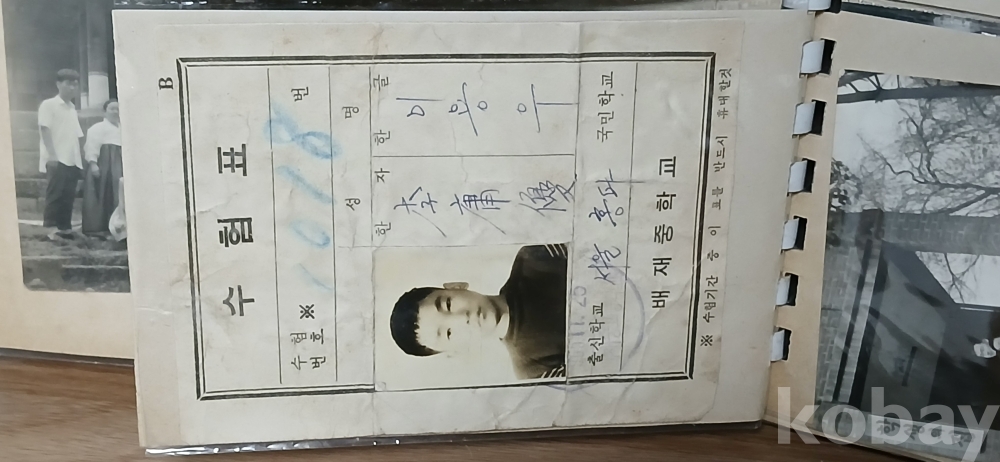 B
수험표
수험번호 ※ 1078 번
성명
한글 이용우
한자 李庸優
출신학교 서울 홍다 국민학교
11.26
배재중학교
※ 수험기간 중 이 표를 반드시 휴대할것
kobay